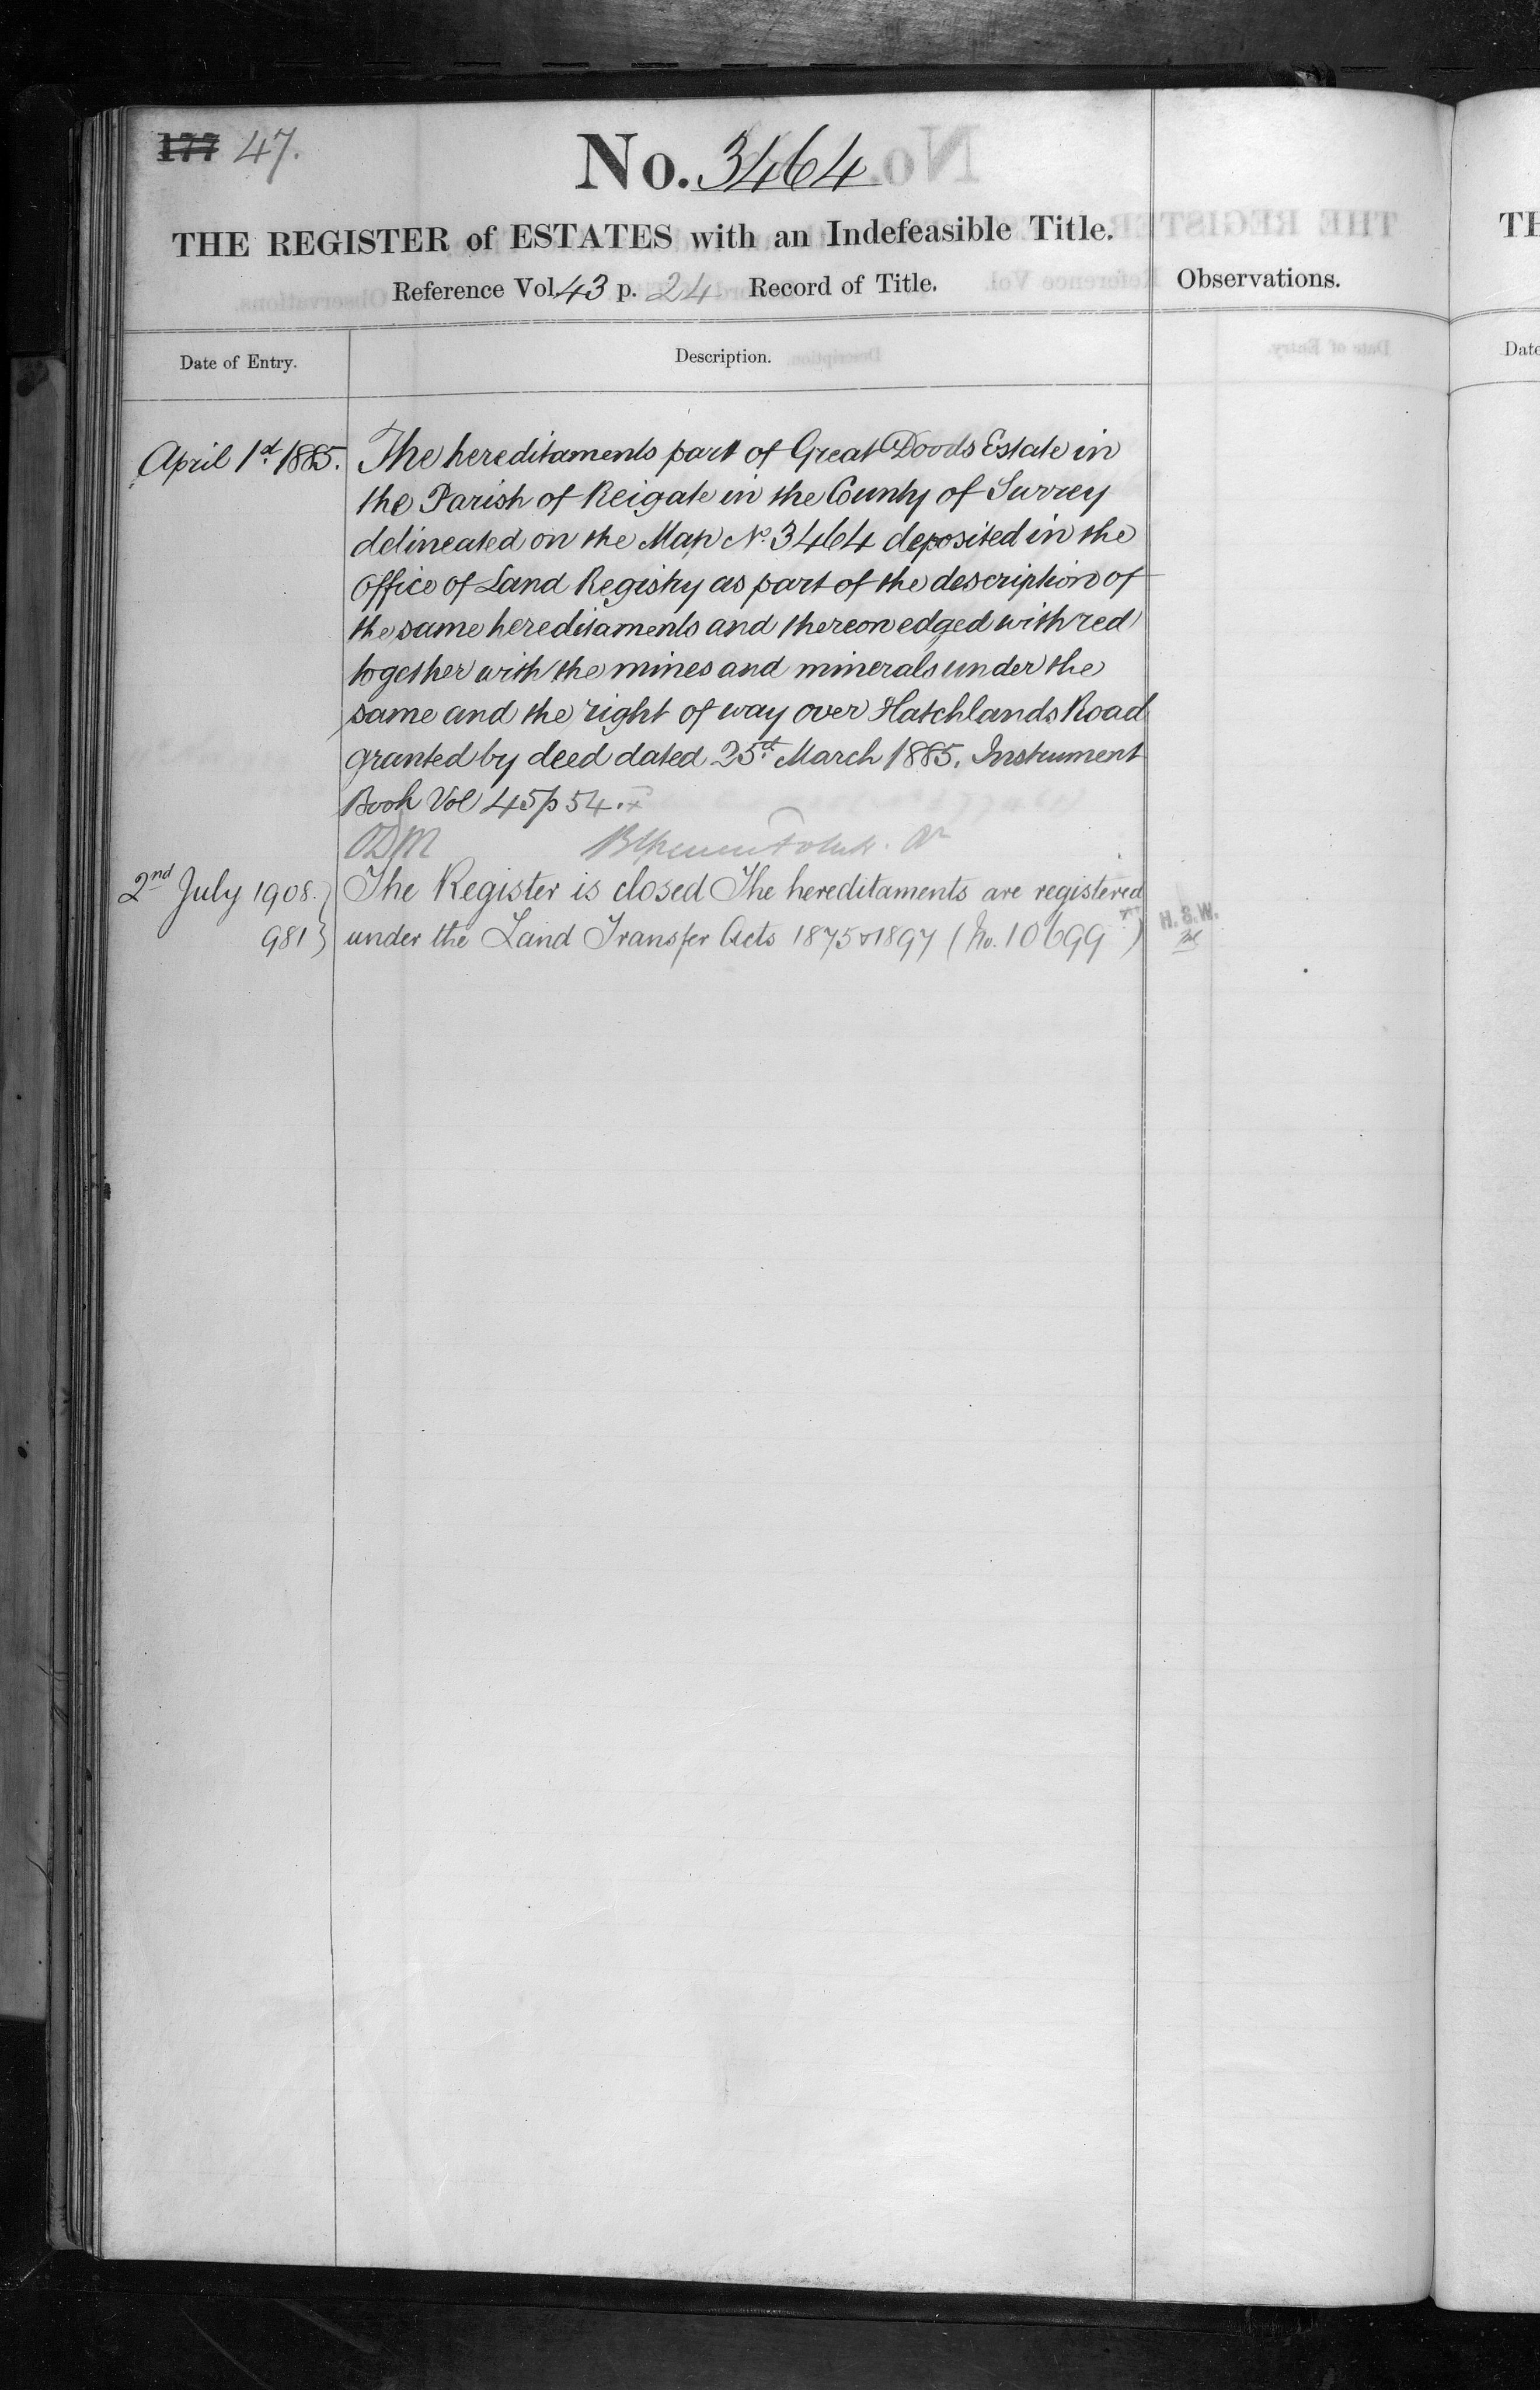 177 47.
No. 3464
THE REGISTER of ESTATES with an Indefeasible Title.
Reference Vol. 43 p. 24 Record of Title.
Observations.
Date of Entry.
Description.
April 1st 1885.
The hereditaments part of Great Doods Estate in
the Parish of Reigate in the County of Surrey
delineated on the Map No. 3464 deposited in the
Office of Land Registry as part of the description of
the same hereditaments and thereon edged with red
together with the mines and minerals under the
same and the right of way over Hatchlands Road
granted by deed dated 25th March 1885. Instrument
Book Vol 45 p 54.
2nd July 1908.
981
The Register is closed The hereditaments are registered
under the Land Transfer Acts 1875 & 1897 (No. 10699)
H.S.W.
TH
Date